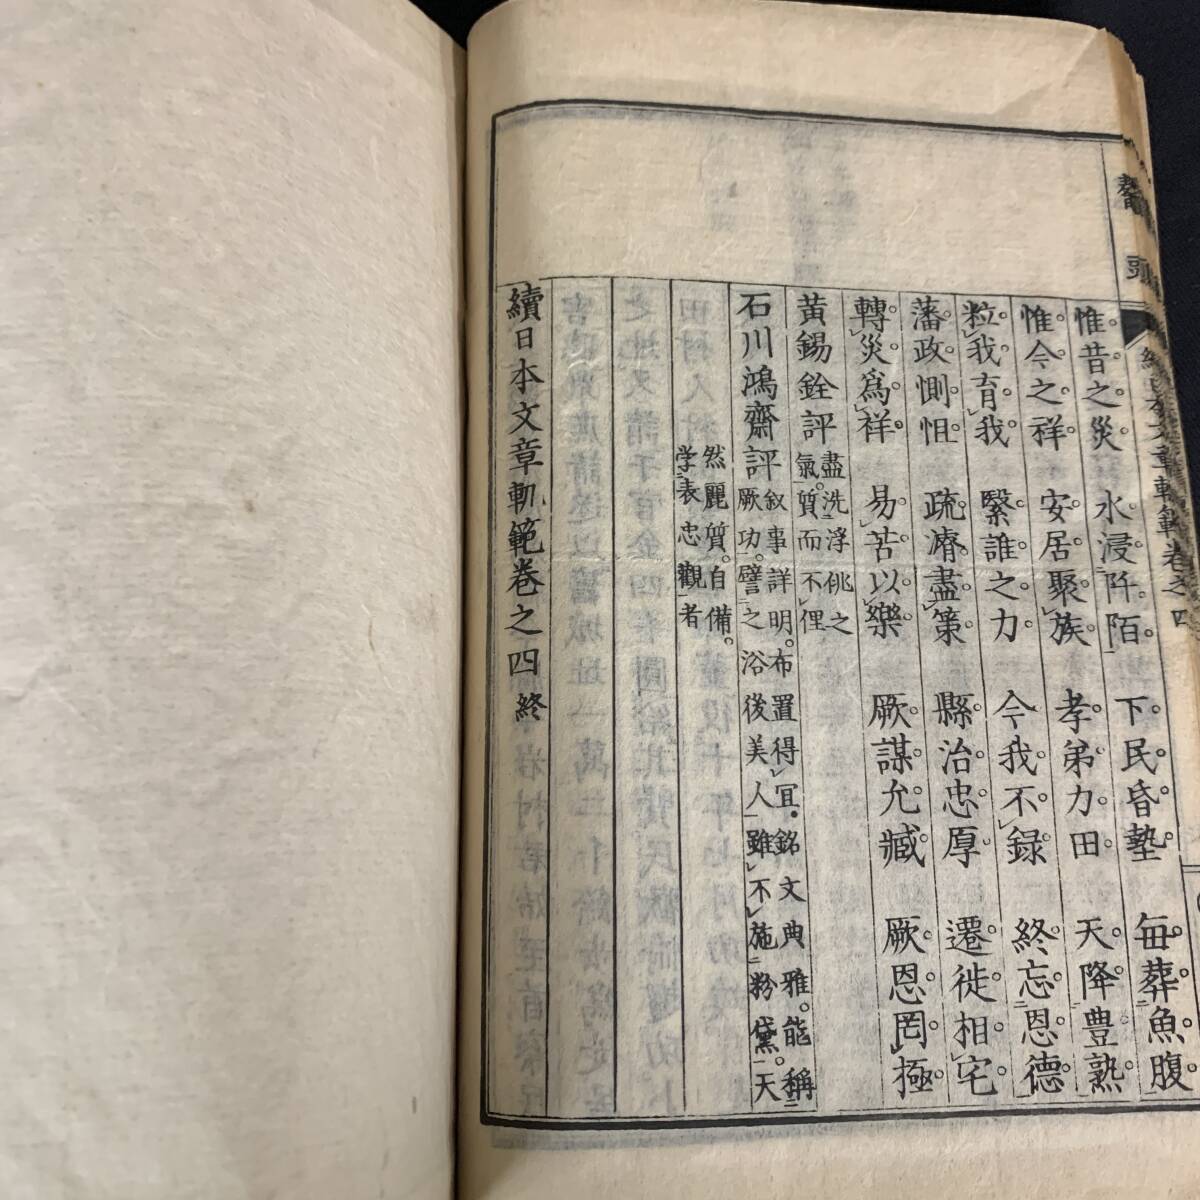 續日本文章軌範 卷之四
惟昔之災。水浸阡陌。下民昏墊。毎葬魚腹
惟今之祥。安居聚族。孝弟力田。天降豊熟。
粒我育我。繄誰之力。今我不錄。終忘恩德。
藩政惻怛。疏濬盡策。縣治忠厚。遷徙相宅。
轉災爲祥。易苦以樂。厥謀允臧。厥恩罔極
黄錫銓評
盡洗浮佻之
氣。質而不俚
石川鴻齋評
叙事詳明。布置得宜。銘文典雅。能稱
厥功。譬之浴後美人雖不施粉黛。天
然麗質。自備。
学表忠觀者
續日本文章軌範卷之四終